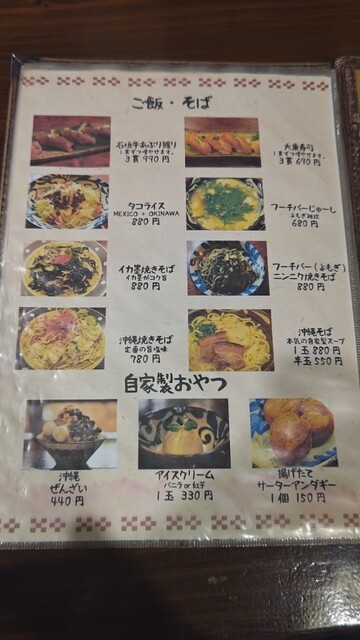 ご飯・そば
石垣牛あぶり握り
1貫ずつ増やせます。
3貫 990円
大東寿司
1貫ずつ増やせます。
3貫 690円
タコライス
MEXICO + OKINAWA
880円
フーチバーじゅーし
よもぎ雑炊
680円
イカ墨焼きそば
イカ墨がコク旨
880円
フーチバー(よもぎ)
ニンニク焼きそば
880円
沖縄焼きそば
定番の旨塩味
780円
沖縄そば
本気の自家製スープ
1玉 880円
半玉 550円
自家製おやつ
沖縄
ぜんざい
440円
アイスクリーム
バニラ or 紅芋
1玉 330円
揚げたて
サーターアンダギー
1個 150円